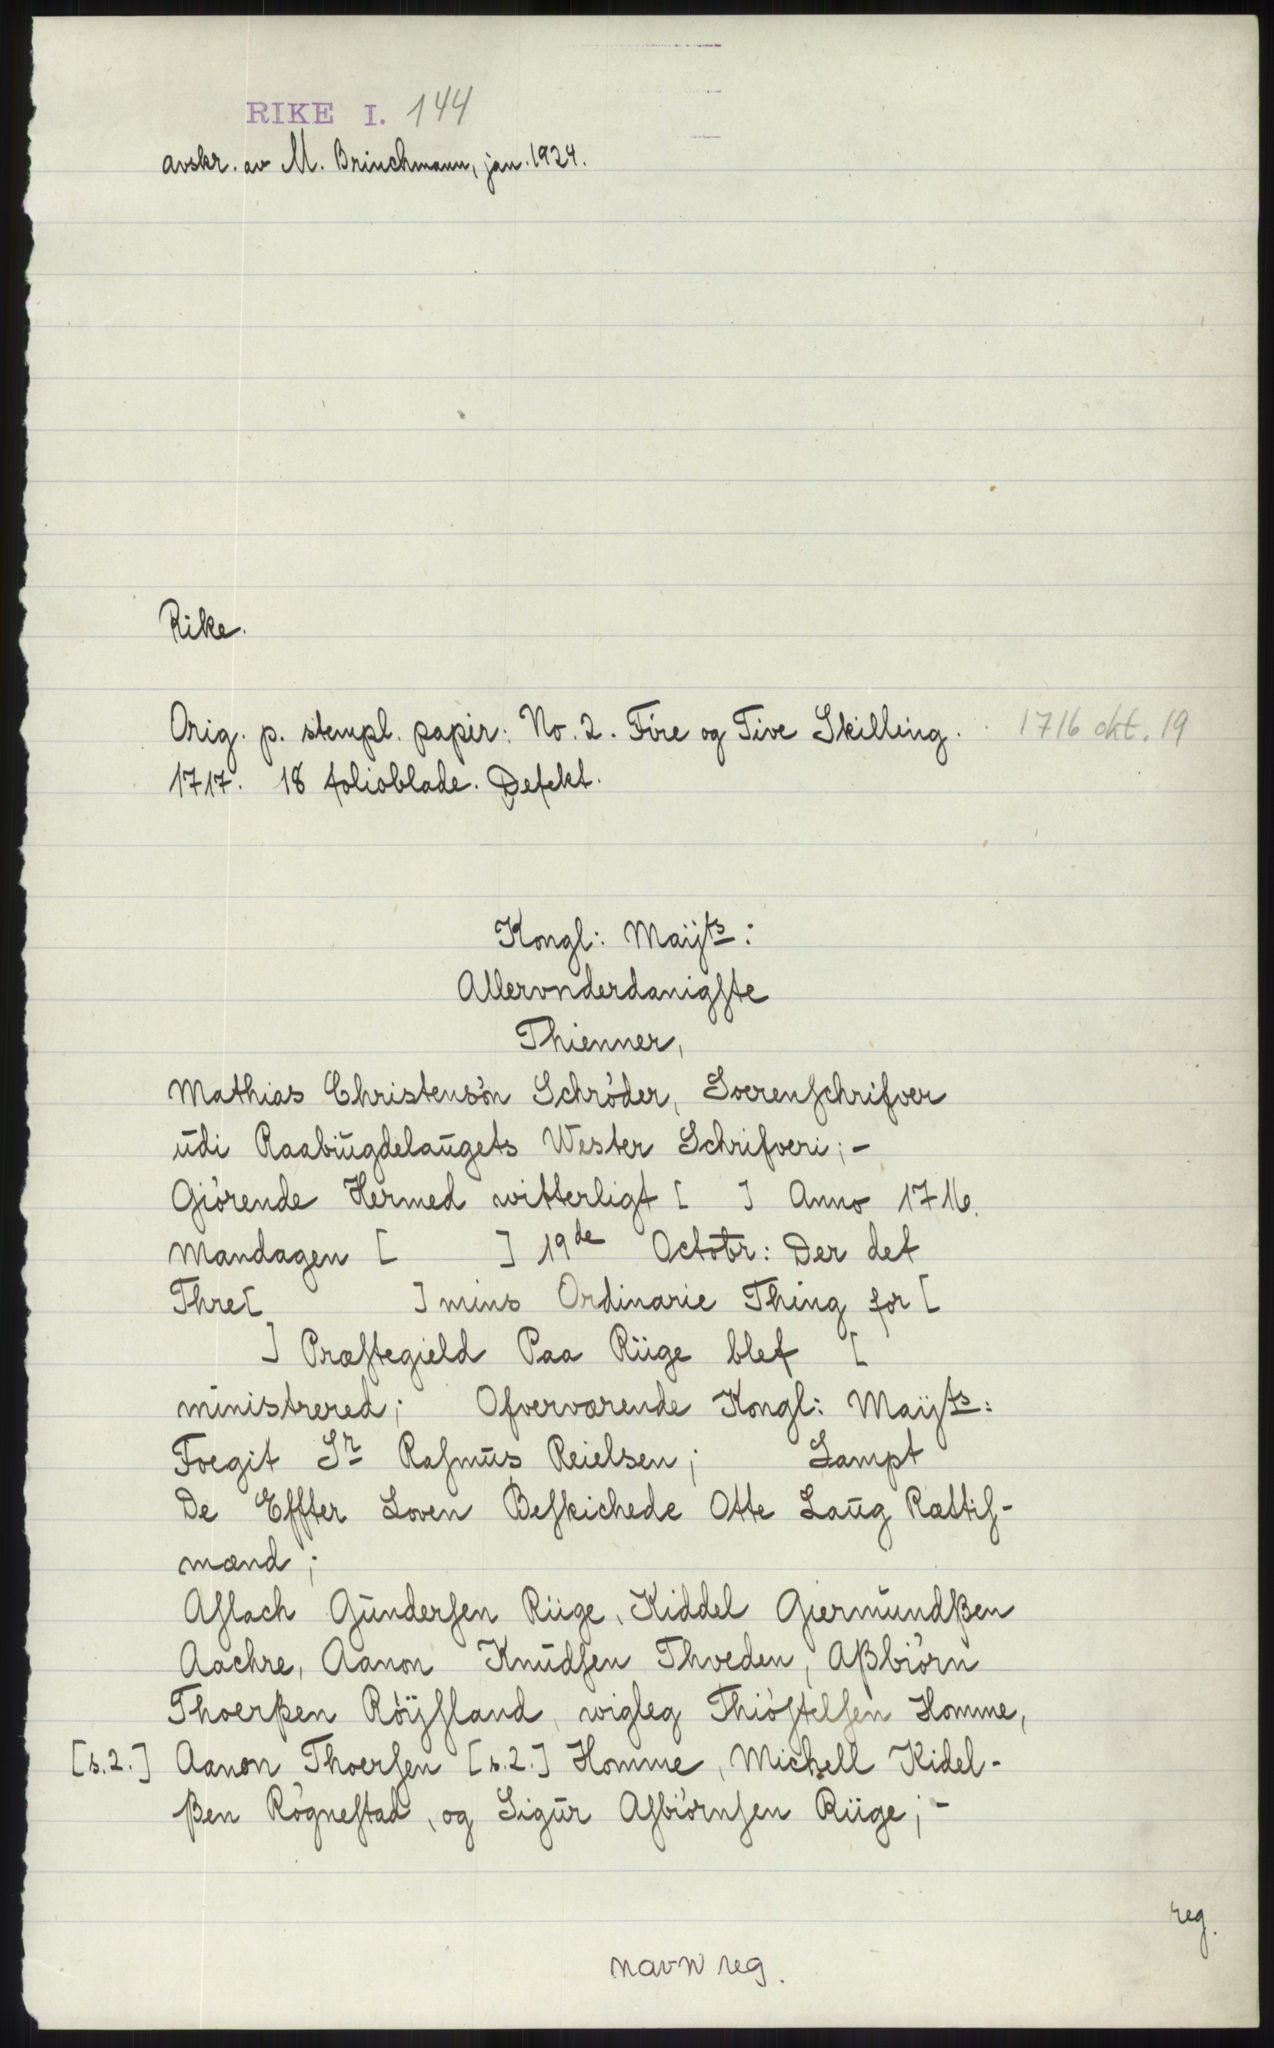 RIKE I. 144
avskr. av M. Brinchmann, jan. 1924.
Rike.
Orig. p. stempl. papir: No. 2. Fire og Tive Skilling. 1716 okt. 19
1717. 18 folioblade. Defekt.
Kongl: Maijts:
Allervnderdanigste
Thienner,
Mathias Christensön Schrøder, Soerenschrifver
udi Raabiugdelaugets Wester Schrifveri; -
Giörende Hermed witterligt [ ] Anno 1716.
Mandagen [ ] 19de Octobr: Der det
Thre[ ] mins Ordinarie Thing for [
] Præstegield Paa Riige blef [
ministrered; Ofverværende Kongl: Maijts:
Foegit Sr Rasmus Reielsen; Sampt
De Effter Loven Beskichede Otte Laug Rættis-
mænd;
Aslach Gundersen Riige, Kiddel Giermundßen
Aachre, Aanon Knudsen Thveden, Aßbiörn
Thoerßen Röijsland, wigleg Thiöstelsen Homme,
[s.2.] Aanon Thoersen [s.2.] Homme, Michell Kidel-
ßen Rögnestad, og Sigur Asbiörnsen Riige; -
reg.
navn reg.